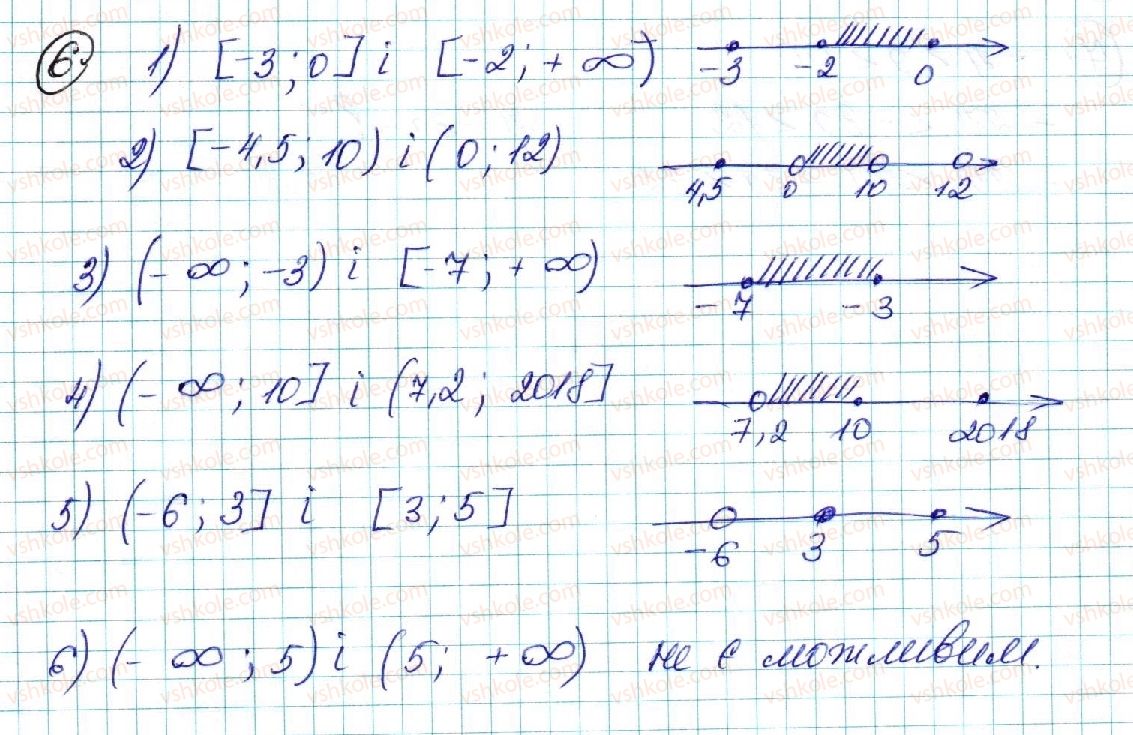 6 1) [-3; 0] і [-2; + ∞) -3 -2 0
2) [-4,5; 10) і (0; 12) 4,5 0 10 12
3) (- ∞; -3) і [-7; + ∞) -7 -3
4) (- ∞; 10] і (7,2; 2018] 7,2 10 2018
5) (-6; 3] і [3; 5] -6 3 5
6) (- ∞; 5) і (5; +∞) не є можливим.